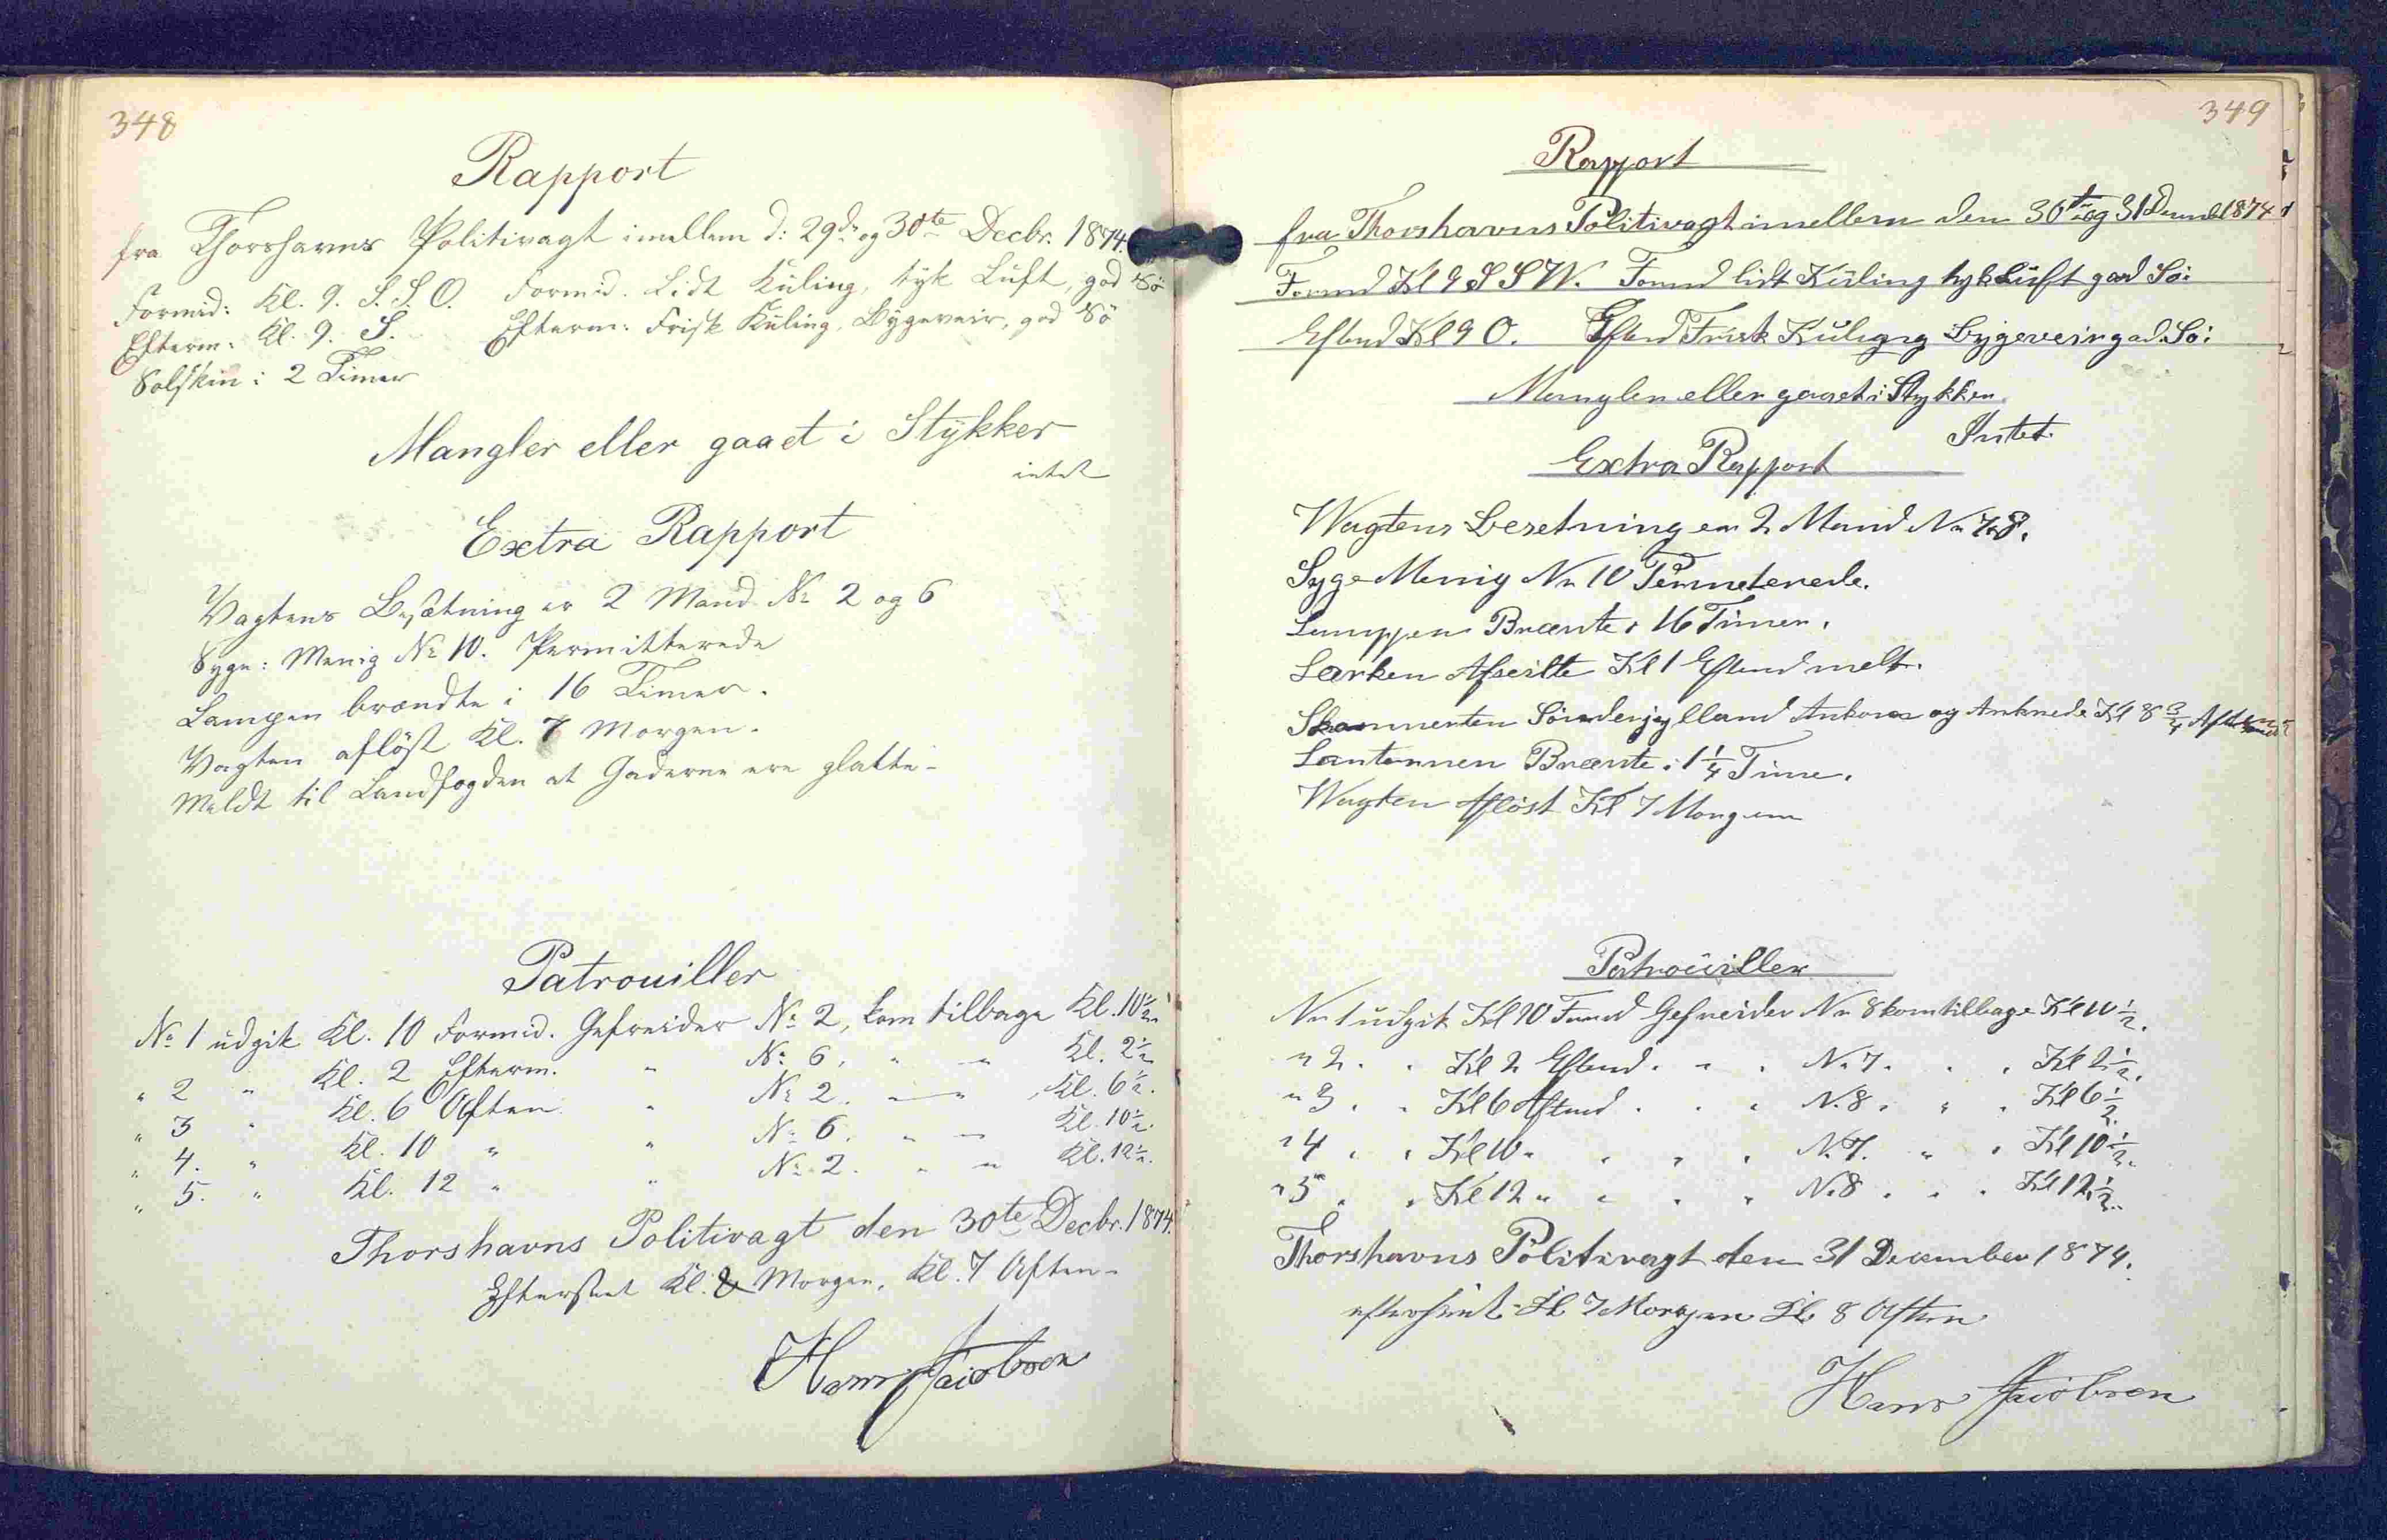 348
Rapport
fra Thorshavns Politivagt imellem d: 29de og 30te Decbr. 1874.
Formid: Kl. 9. S.S.O. Formid. Lidt Kuling, tyk Luft, god Sö
Efterm: Kl. 9. S. Efterm: Frisk Kuling, Bygeveir, god Sö
Solskin i 2 Timer
Mangler eller gaaet i Stykker
intet
Extra Rapport
Vagtens Besætning er 2 Mand No 2 og 6
Syge: Menig No 10. Permitterede
Lampen brændte i 16 Timer.
Vagten aflöst Kl. 7 Morgen.
Meldt til Landfogden at Gaderne ere glatte.
Patrouiller
No 1 udgik Kl. 10 Formid. Gefreider No 2, kom tilbage Kl. 10½
" 2 " Kl. 2 Efterm. " No 6. " " Kl. 2½
" 3 " Kl. 6 Aften " No 2. " " Kl. 6½.
" 4. " Kl. 10 " " No 6. " " Kl. 10½.
" 5. " Kl. 12 " " No 2. " " Kl. 12½.
Thorshavns Politivagt den 30te Decbr. 1874.
Efterseet Kl. 8 Morgen, Kl. 7 Aften.
Hans Jacobsen
349
Rapport
fra Thorshavns Politivagt imellem den 30te og 31 Decmb 1874
Formd Kl 9 S S W. Formd lidt Kuling tyk Luft god Sö:
Eftmd Kl 9 O. Eftmd Frisk Kuling Bygeveir god Sö:
Mangler eller gaaet i Stykker
Intet.
Extra Rapport
Wagtens Besetning er 2 Mand No 7&8.
Syge Menig No 10 Permeterede.
Lamppen Brænte i 16 Timer.
Lærken Afseilte Kl 1 Eftmd
Sönderjylland Ankom og Ankrede Kl 8¾
Lanternen Brænte i 1¼ Time.
Wagten Aflöst Kl 7 Morgen
Patrouiller
No 1 udgik Kl 10 Formd Gefreider No 8 kom tilbage Kl 10½.
" 2. " Kl 2 Eftmd. " " No 7. " " Kl 2½.
" 3. " Kl 6 Aftmd. " " No 8. " " Kl 6½.
" 4 " " Kl 10 " " " " No 7. " " Kl 10½.
" 5 " " Kl 12 " " " " No 8. " " Kl 12½.
Thorshavns Politivagt den 31 December 1874.
efterseet Kl 7 Morgen Kl 8 Aften
Hans Jacobsen